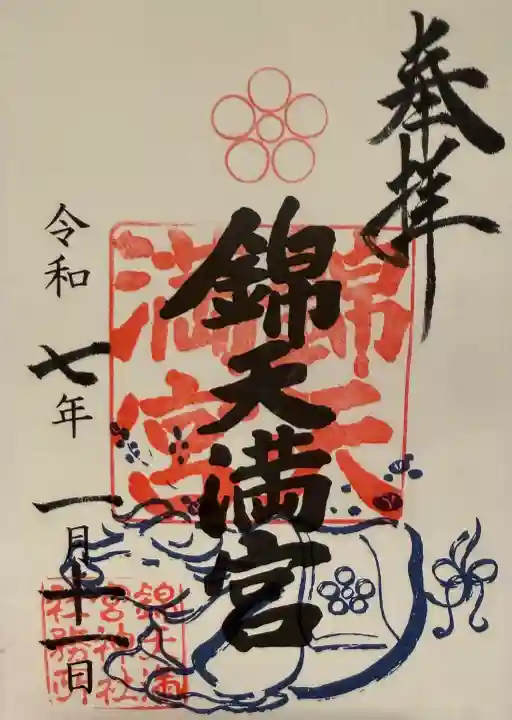 奉拝
錦天
満宮
錦天満宮
令和七年一月十一日
錦天満
宮神社
社務所